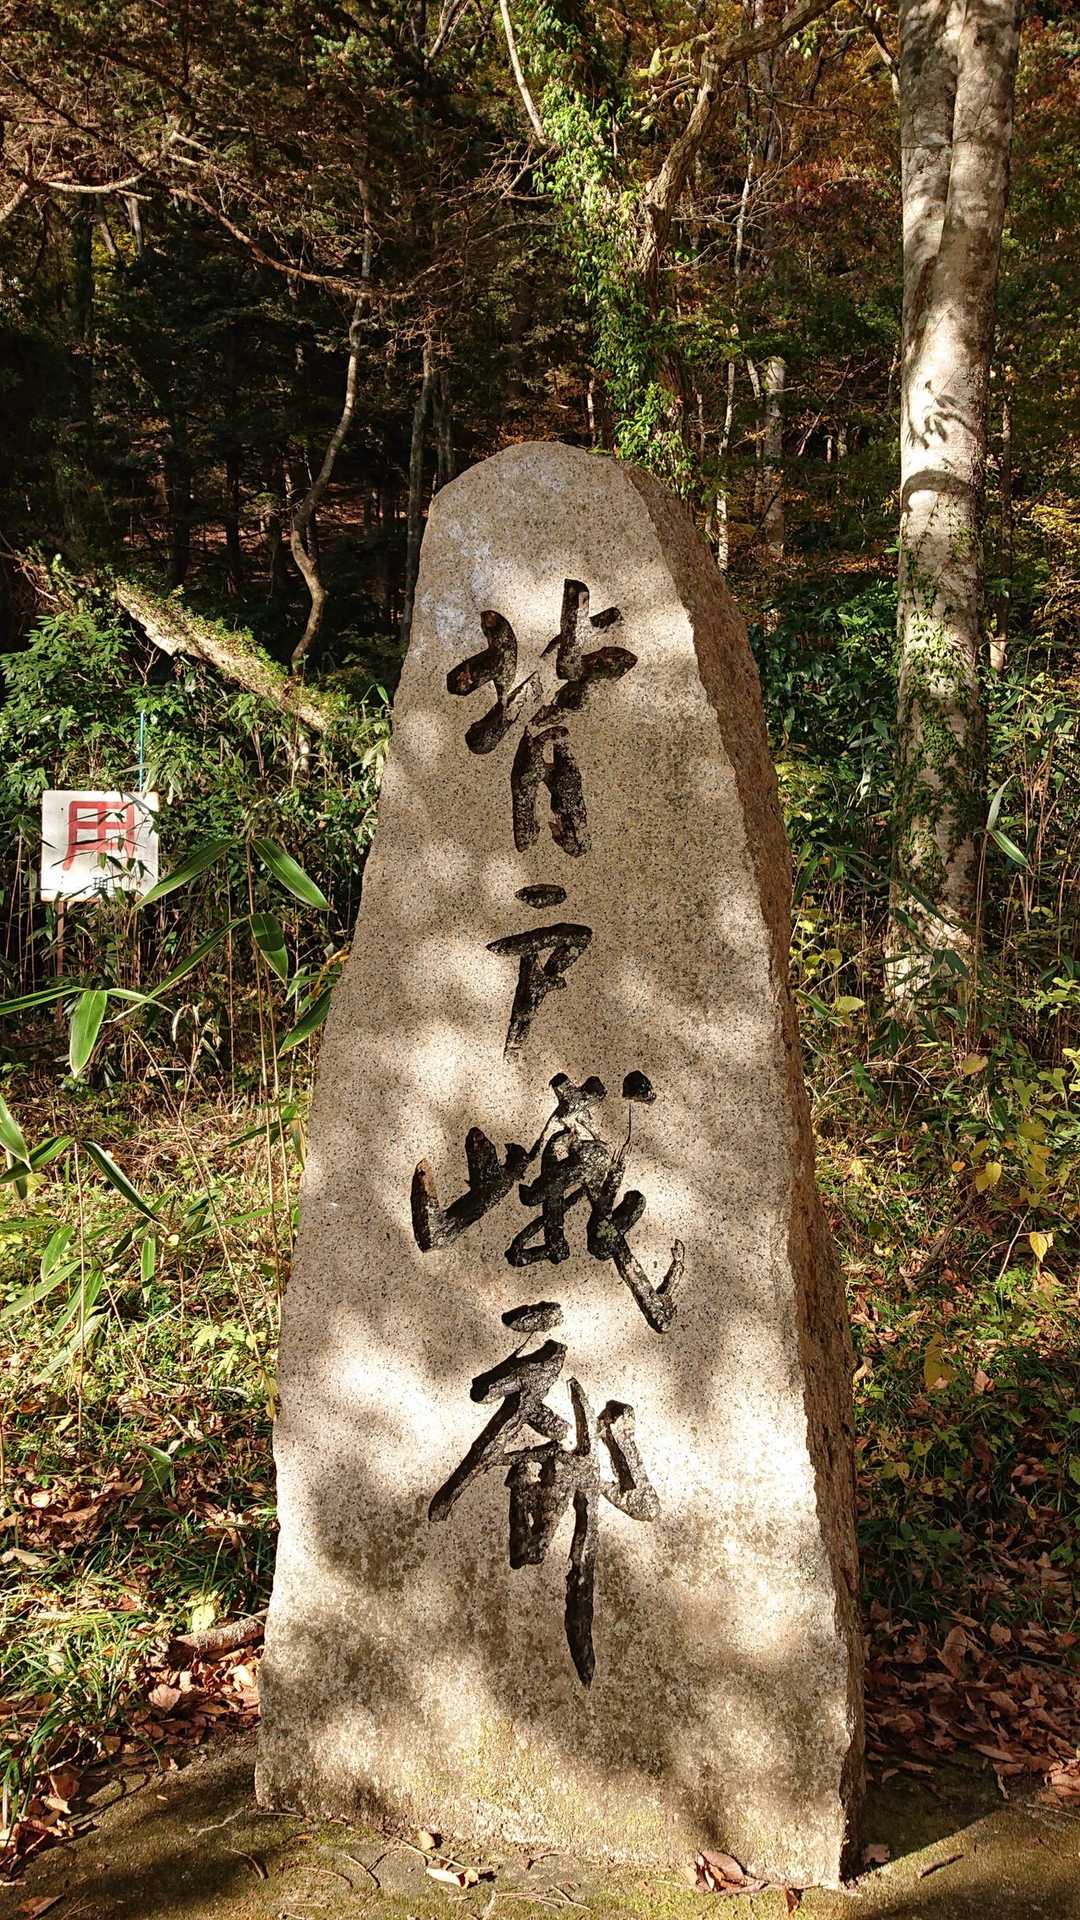 背戸峨廊
用